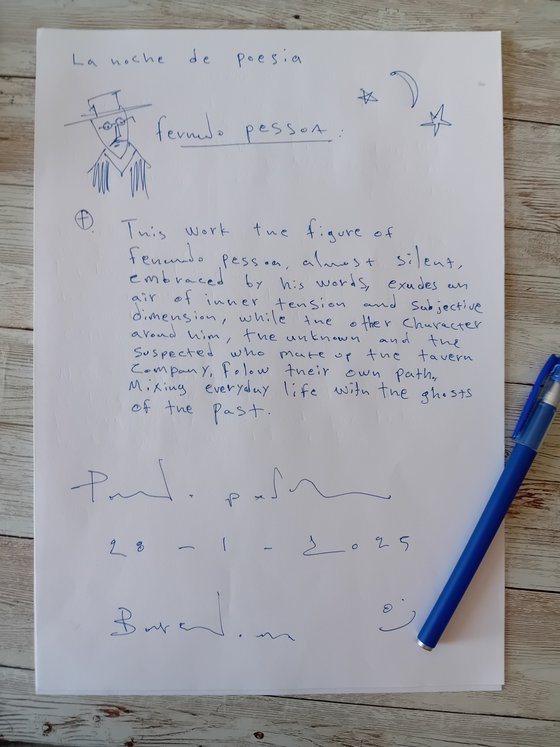 La noche de poesia
fernndo pessoA.
This work the figure of
fernndo pessoa, almost silent,
embraced by his words, exudes an
air of inner tension and subjective
dimension, while the other character
around him, the unknown and the
suspected who make up the tavern
company, folow their own path,
Mixing everyday life with the ghosts
of the past.
28 - 1 - 2025